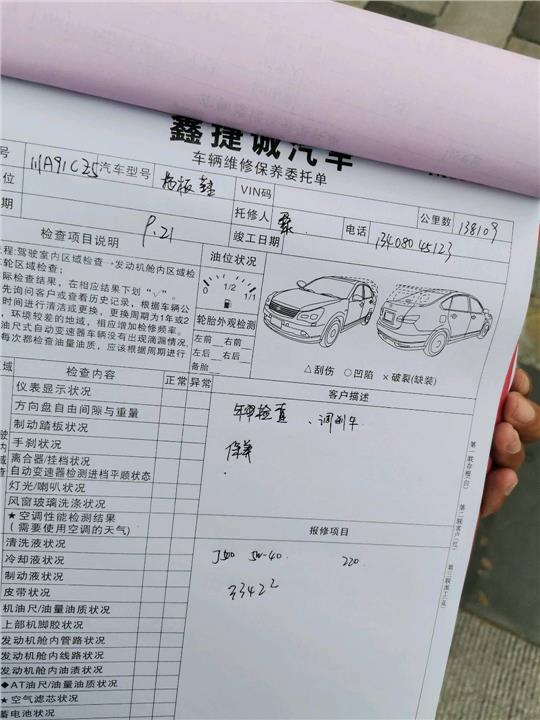 鑫捷诚汽车
车辆维修保养委托单
号 川A91CZ5 汽车型号 VIN码
位 托修人 电话 13408045123 公里数 138109
期 9.21 竣工日期
检查项目说明
程:驾驶室内区域检查→发动机舱内区域检
轮区域检查;
际检查结果,在相应结果下划“√”。
先询问客户或查看历史记录,根据车辆公
时间进行清洁或更换,更换周期为1年或2
,环境较差的地域,相应增加检修频率。
油尺式自动变速器车辆没有出现滴漏情况
每次都检查油量油质,应该根据周期进行
油位状况
0 1/2 1/1
轮胎外观检测
左前__右前
左后__右后
备胎__
△刮伤 ○凹陷 ×破裂(缺装)
区域 检查内容 正常 异常
仪表显示状况
方向盘自由间隙与重量
制动踏板状况
手刹状况
离合器/挂档状况
自动变速器检测进档平顺状态
灯光/喇叭状况
风窗玻璃洗涤状况
★空调性能检测结果
(需要使用空调的天气)
清洗液状况
冷却液状况
制动液状况
皮带状况
机油尺/油量油质状况
上部机脚胶状况
发动机舱内管路状况
发动机舱内线路状况
发动机舱内油渍状况
◆AT油尺/油量油质状况
★空气滤芯状况
蓄电池状况
客户描述
检查、调刹车
保养
报修项目
J500 5W-40. 220
33422
第一联存根(白)
第二联客户(红)
第三联施工(蓝)